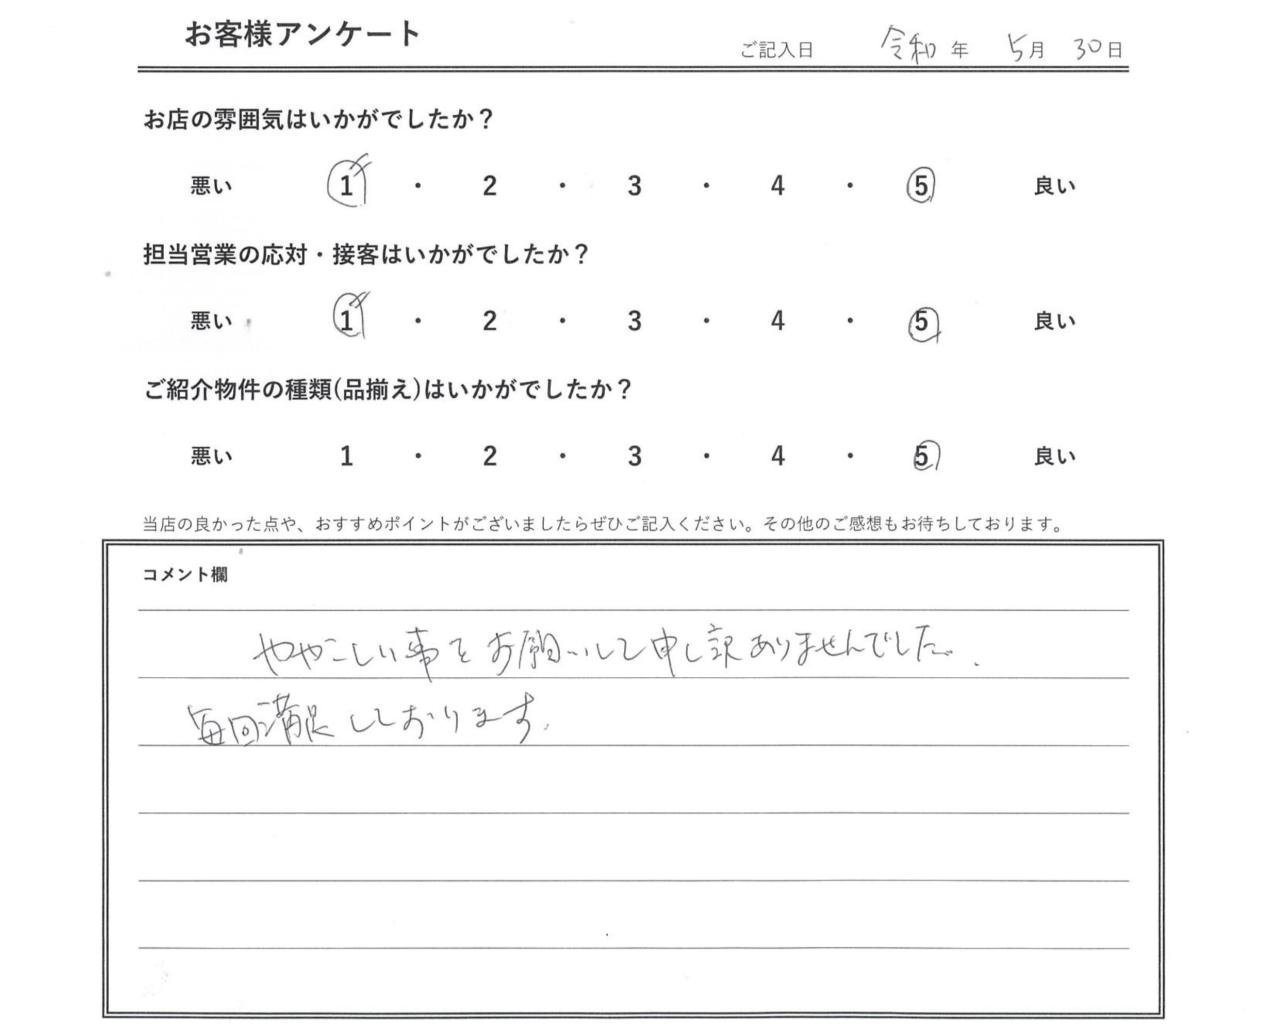 お客様アンケート
ご記入日 令和 年 5月 30日
お店の雰囲気はいかがでしたか？
悪い 1 ・ 2 ・ 3 ・ 4 ・ 5 良い
担当営業の応対・接客はいかがでしたか？
悪い 1 ・ 2 ・ 3 ・ 4 ・ 5 良い
ご紹介物件の種類(品揃え)はいかがでしたか？
悪い 1 ・ 2 ・ 3 ・ 4 ・ 5 良い
当店の良かった点や、おすすめポイントがございましたらぜひご記入ください。その他のご感想もお待ちしております。
コメント欄
ややこしい事をお願いして申し訳ありませんでした。
毎回満足しております。